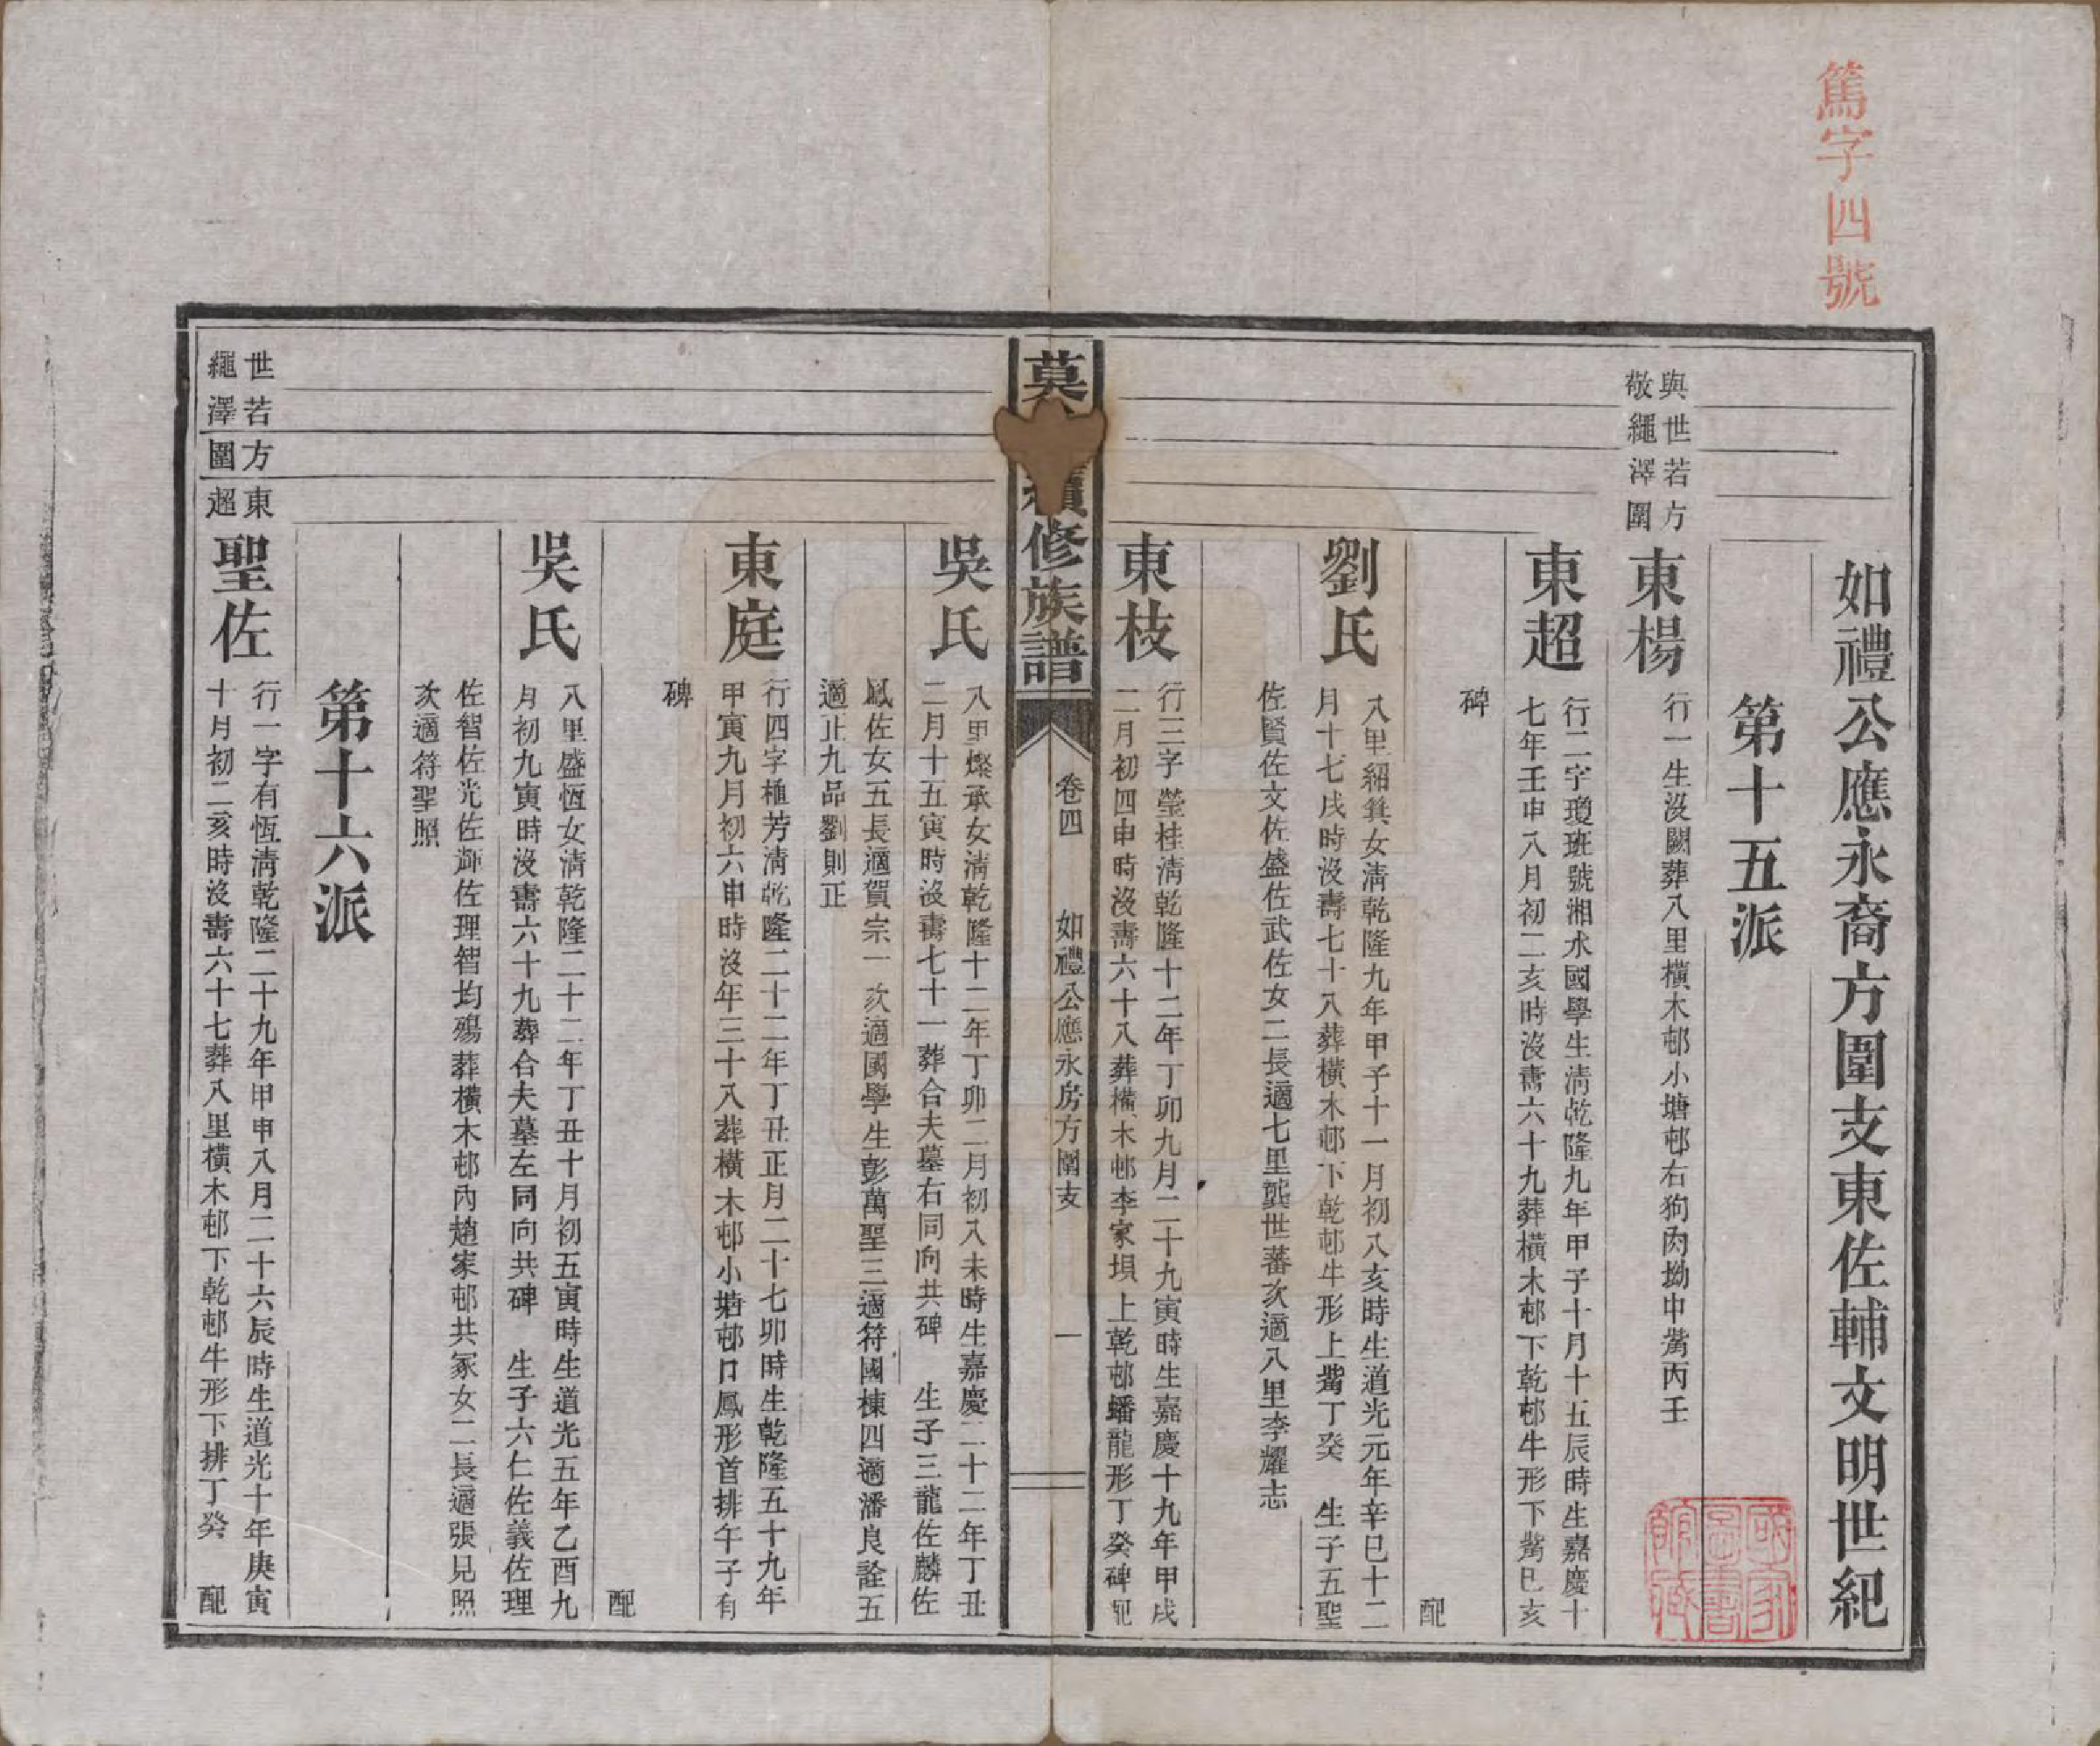 篤字四號
如禮公應永裔方圍支東佐輔文明世紀
第十五派
與世若方
敬繩澤圍
東楊
行一生沒闕葬八里橫木邨小塘邨右狗肉坳中觜丙壬
東超
行二字瓊班號湘水國學生淸乾隆九年甲子十月十五辰時生嘉慶十
七年壬申八月初二亥時沒壽六十九葬橫木邨下乾邨牛形下觜巳亥
碑
配
劉氏
八里紹箕女淸乾隆九年甲子十一月初八亥時生道光元年辛巳十二
月十七戌時沒壽七十八葬橫木邨下乾邨牛形上觜丁癸 生子五聖
佐賢佐文佐盛佐武佐女二長適七里龔世蕃次適八里李耀志
東枝
行三字瑩桂淸乾隆十二年丁卯九月二十九寅時生嘉慶十九年甲戌
二月初四申時沒壽六十八葬橫木邨李家垻上乾邨蟠龍形丁癸碑配
莫
續修族譜
卷四
如禮公應永房方圍支
一
吳氏
八里燦承女淸乾隆十二年丁卯二月初八未時生嘉慶二十二年丁丑
二月十五寅時沒壽七十一葬合夫墓右同向共碑 生子三龍佐麟佐
鳳佐女五長適賀宗一次適國學生彭萬聖三適符國棟四適潘良詮五
適正九品劉則正
東庭
行四字植芳淸乾隆二十二年丁丑正月二十七卯時生乾隆五十九年
甲寅九月初六申時沒年三十八葬橫木邨小塘邨口鳳形首排午子有
碑
配
吳氏
八里盛恆女淸乾隆二十二年丁丑十月初五寅時生道光五年乙酉九
月初九寅時沒壽六十九葬合夫墓左同向共碑 生子六仁佐義佐理
佐智佐光佐輝佐理智均殤葬橫木邨內趙家邨共冢女二長適張見照
次適符聖照
第十六派
世若方東
繩澤圍超
聖佐
行一字有恆淸乾隆二十九年甲申八月二十六辰時生道光十年庚寅
十月初二亥時沒壽六十七葬八里橫木邨下乾邨牛形下排丁癸 配
國家
圖書
館藏